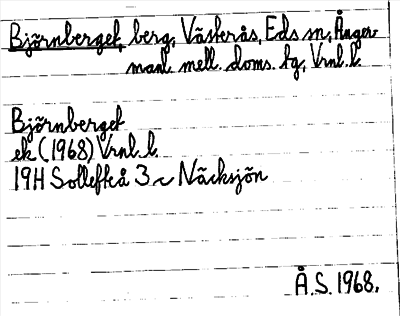 Björnberget, berg, Västerås, Eds sn, Ånger-
manl. mell. doms. fg, Vrnl. l.
Björnberget
ek (1968) Vrnl. l.
19H Sollefteå 3 c Näcksjön
Å.S. 1968.